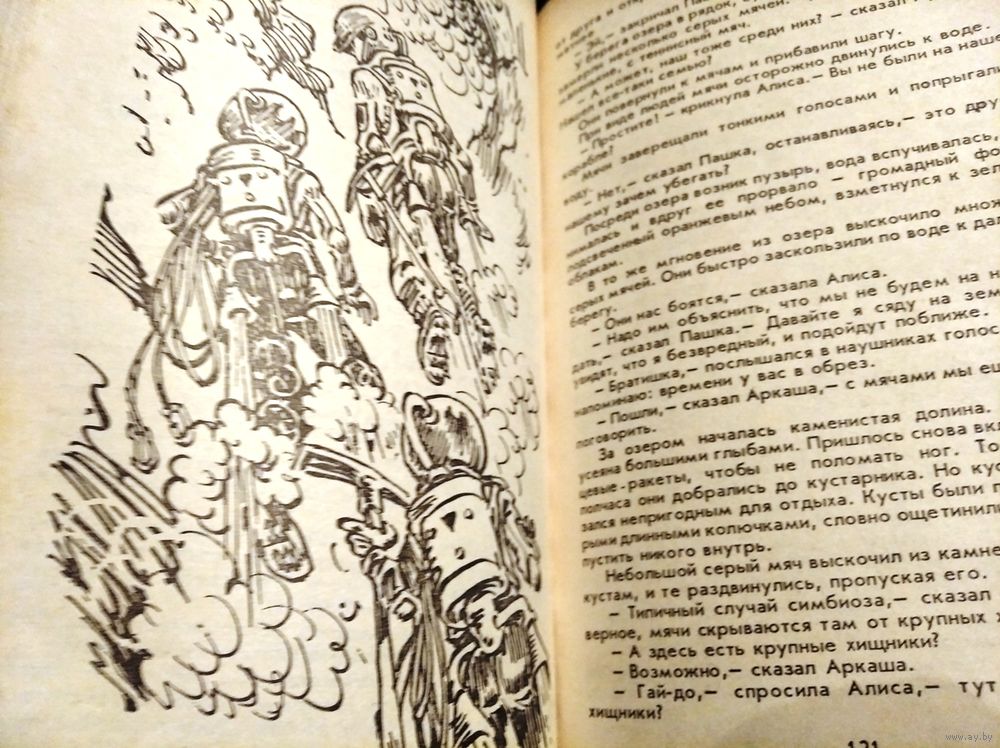 от друга и откр
— Эй, — закричал Паш
У берега озера в рядок,
замерли несколько серых мячей.
маленькие, с теннисный мяч.
— А может, наш тоже среди них? — сказал
Нашел все-таки семью?
Они повернули к мячам и прибавили шагу.
При виде людей мячи осторожно двинулись к воде.
— Простите! — крикнула Алиса.— Вы не были на наше
корабле?
Мячи заверещали тонкими голосами и попрыгали
воду.
— Нет,— сказал Пашка, останавливаясь,— это дру
нашему зачем убегать?
Посреди озера возник пузырь, вода вспучивалась,
нималась и вдруг ее прорвало — громадный фо
подсвеченный оранжевым небом, взметнулся к зел
облакам.
В то же мгновение из озера выскочило множ
серых мячей. Они быстро заскользили по воде к да
берегу.
— Они нас боятся,— сказала Алиса.
— Надо им объяснить, что мы не будем на н
дать,— сказал Пашка.— Давайте я сяду на зем
увидят, что я безвредный, и подойдут поближе.
— Братишка,— послышался в наушниках голос
напоминаю: времени у вас в обрез.
— Пошли,— сказал Аркаша,— с мячами мы ещ
поговорить.
За озером началась каменистая долина.
усеяна большими глыбами. Пришлось снова вкл
цевые-ракеты, чтобы не поломать ног. То
полчаса они добрались до кустарника. Но кус
зался непригодным для отдыха. Кусты были п
рыми длинными колючками, словно ощетинили
пустить никого внутрь.
Небольшой серый мяч выскочил из камне
кустам, и те раздвинулись, пропуская его.
— Типичный случай симбиоза,— сказал
верное, мячи скрываются там от крупных х
— А здесь есть крупные хищники?
— Возможно,— сказал Аркаша.
— Гай-до,— спросила Алиса,— тут
хищники?
121
www.ay.by